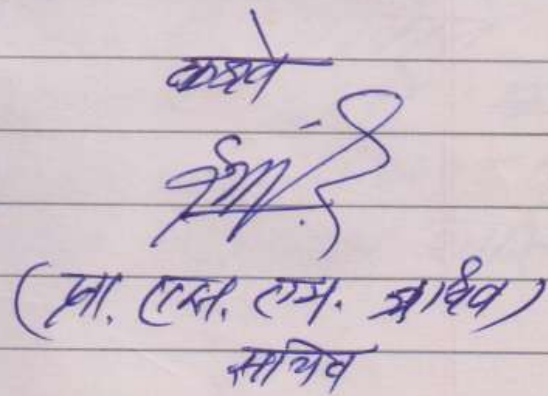 कळावे
(प्रा. एस. एम. जाधव)
सचिव